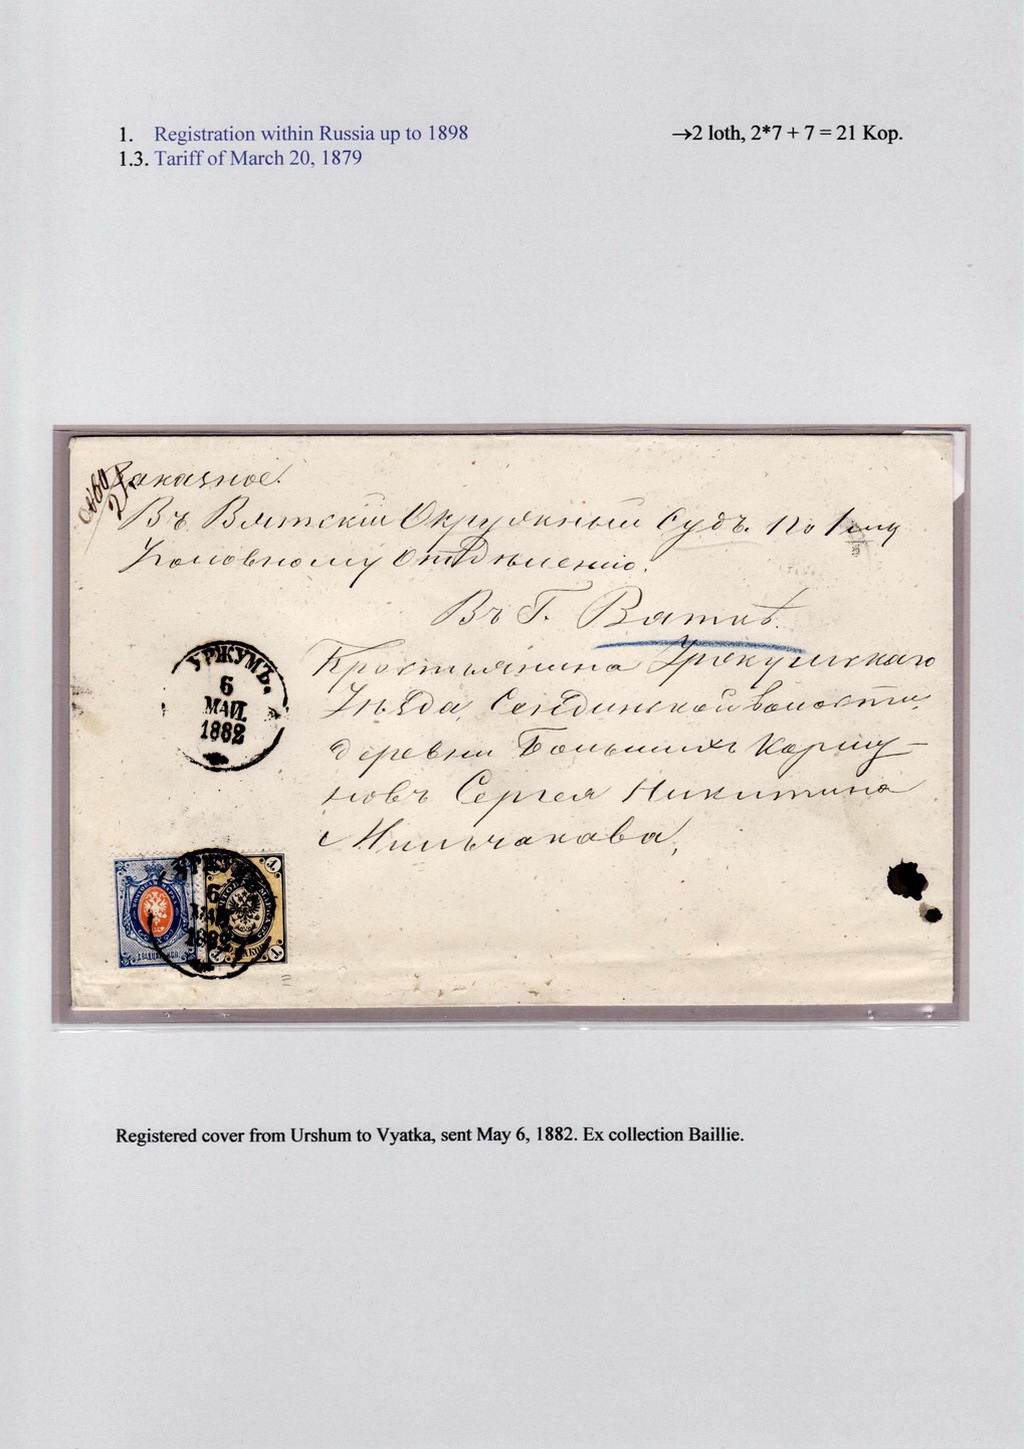 1. Registration within Russia up to 1898
→2 loth, 2*7 + 7 = 21 Kop.
1.3. Tariff of March 20, 1879
Заказное.
Въ Вятскій Окружный Судъ. По 1му
Уголовному Отдѣленію.
Въ Г. Вяткѣ.
Крестьянина Уржумскаго
Уѣзда, Сендинской волости,
деревни Большихъ Коршу-
новъ Сергея Никитина
Мильчакова,
УРЖУМЪ.
6
МАЯ
1882
УРЖУМЪ
6
МАЯ
1882
Registered cover from Urshum to Vyatka, sent May 6, 1882. Ex collection Baillie.